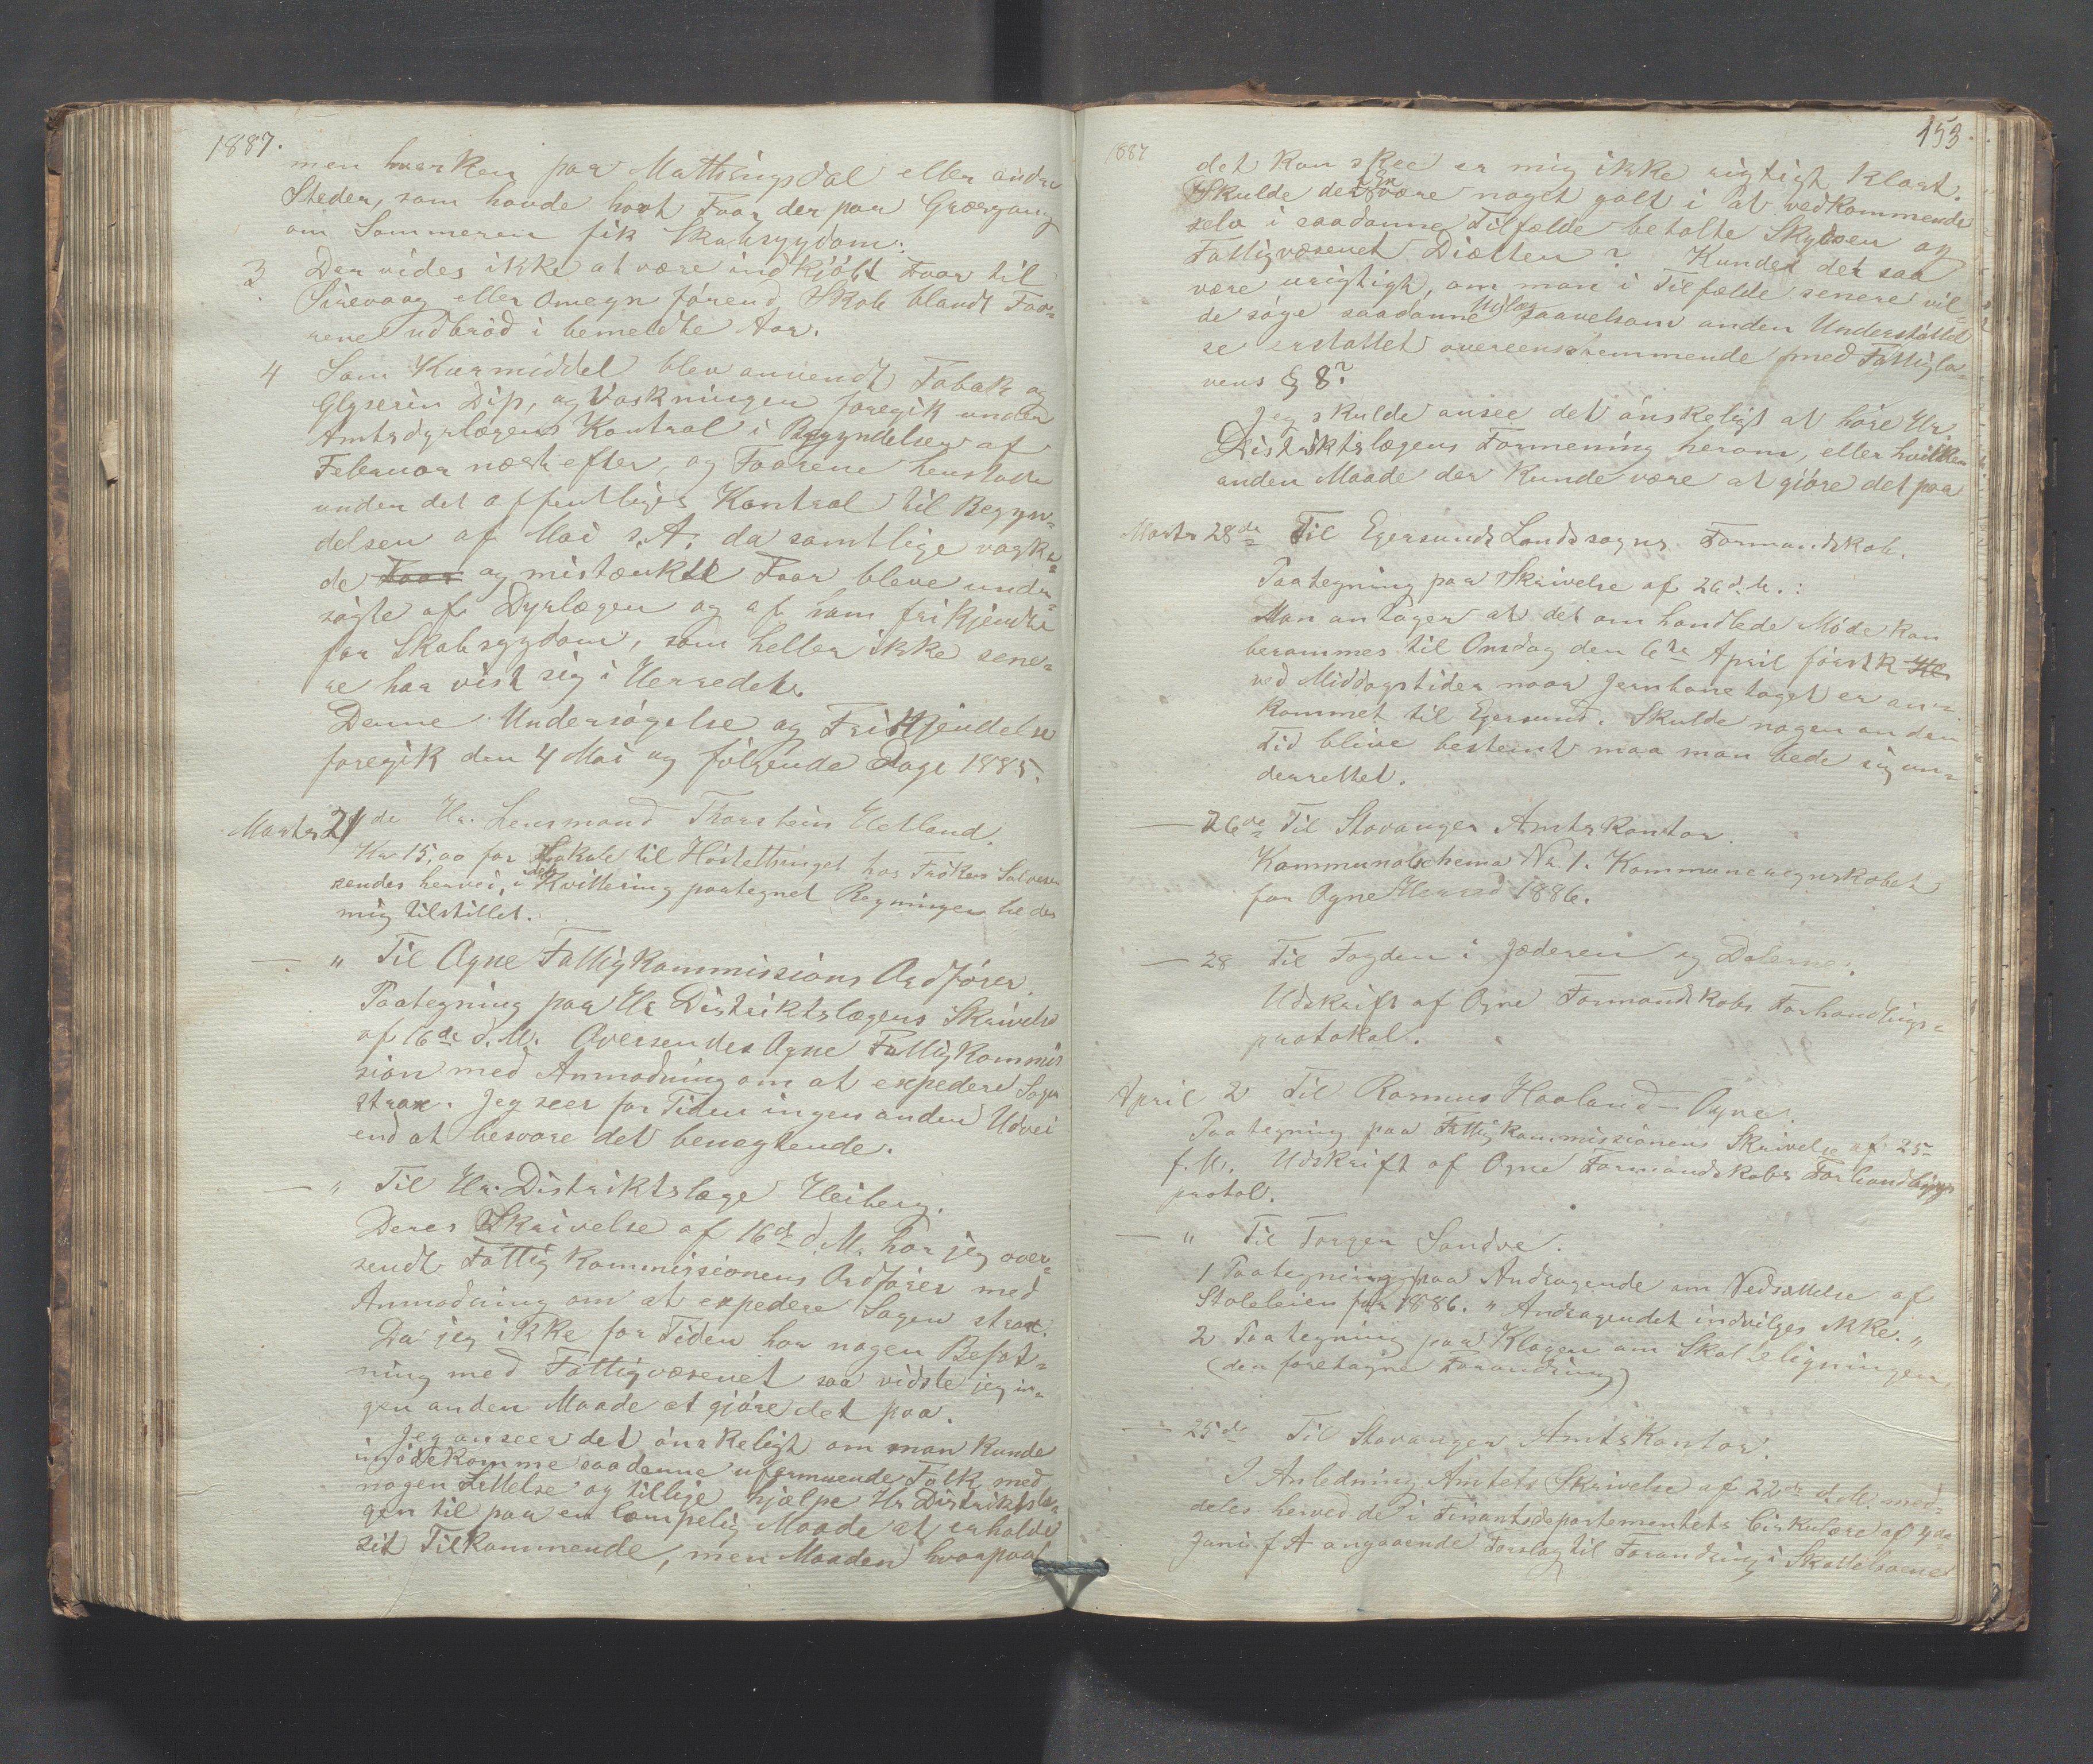 1887.
men hverken paa Mattingsdal eller andre
Steder, som havde havt Faar der paa Græsgang
om Sommeren fik Skabsygdom.
3 Der vides ikke at være indkjöbt Faar til
Sirevaag eller Omegn förend Skab blandt Faa-
rene udbröd i bemeldte Aar.
4 Som Kurmiddel blev anvendt Tobak og
Glyserin Dip, og Vaskningen foregik under
Amtsdyrlægens Kontrol i Begyndelsen af
Februar næst efter, og Faarene henstode
under det offentliges Kontrol til Begyn-
delsen af Mai s.A. da samtlige vaske-
de Faar og mistænkte Faar bleve under-
sögte af Dyrlægen og af ham frikjendte
for Skabsygdom, som heller ikke sene-
re har vist sig i Herredet.
Denne Undersögelse og Frikjendelse
foregik den 4 Mai og fölgende Dage 1885.
Marts 21de Hr. Lensmand Thorstein Hetland.
Kr 15,00 for Lokale til Hösttettinget hos Fröken Salvesen
sendes herved, i det Kvittering paategnet Regningen bedes
mig tilstillet.
— " Til Ogne Fattigkommissions Ordförer.
Paategning paa Hr Distriktslægens Skrivelse
af 16de d.M. Oversendes Ogne Fattigkommis
sion med Anmodning om at expedere Sagen
strax. Jeg seer for Tiden ingen anden Udvei
end at besvare det benægtende.
— " Til Hr. Distriktslæge Heiberg.
Deres Skrivelse af 16de d.M. har jeg over-
sendt Fattigkommissionens Ordförer med
Anmodning om at expedere Sagen strax.
Da jeg ikke for Tiden har nogen Befat-
ning med Fattigvæsenet saa vidste jeg in-
gen anden Maade at gjöre det paa.
Jeg anseer det önskeligt om man kunde
imödekomme saadanne uformuende Folk med
nogen Lettelse og tillige hjælpe Hr Distriktslæ-
gen til paa en læmpelig Maade at erholde
sit Tilkommende, men Maaden hvorpaa
1887 153.
det kan skee er mig ikke rigtigt klart.
Skulde der være noget galt i at vedkommende
selv i saadanne Tilfælde betalte Skydsen og
Fattigvæsenet Diætten? Kunde det saa
være urigtigt, om man i Tilfælde senere vil-
de söge saadanne Udlæg saavelsom anden Understöttel
se erstattet overeensstemmende med Fattiglo-
vens § 8?
Jeg skulde ansee det önskeligt at höre Hr.
Distriktslægens Formening herom, eller hvilken
anden Maade der kunde være at gjöre det paa
Marts 28de Til Egersunds Landsogns Formandskab.
Paategning paa Skrivelse af 26 d.M.:
Man antager at det omhandlede Möde kan
berammes til Onsdag den 6te April förstk Kl
ved Middagstider naar Jernbanetoget er an-
kommet til Egersund. Skulde nogen anden
Tid blive bestemt maa man bede sig un-
derrettet.
— 26de Til Stavanger Amtskontor.
Kommunalschema No. 1. Kommuneregnskabet
for Ogne Herred 1886.
— 28 Til Fogden i Jæderen og Dalerne.
Udskrift af Ogne Formandskabs Forhandlings-
protokol.
April 2 Til Rasmus Haaland — Ogne.
Paategning paa Fattigkommissionens Skrivelse af 25
f.M. Udskrift af Ogne Formandskabs Forhandlings
protol.
— " Til Torger Sandve.
1 Paategning paa Andragende om Nedsættelse af
Stoleleien for 1886. " Andragendet indvilges ikke. "
2 Paategning paa Klagen om Skatteligningen
(den foretagne Forandring)
— 25de Til Stavanger Amtskontor.
I Anledning Amtets Skrivelse af 22de d.M. med-
deles herved de i Finantsdepartementets Cirkulære af 4de
Juni f A angaaende Forslag til Forandring i Skattelovene